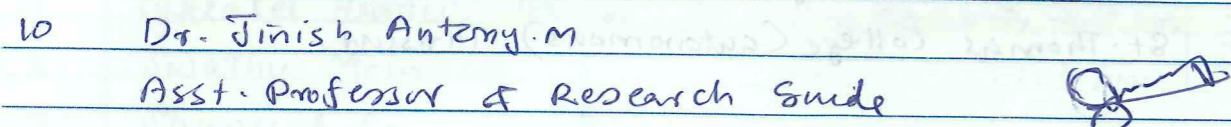 10 Dr. Jinish Antony.M
Asst. Professor & Research Guide